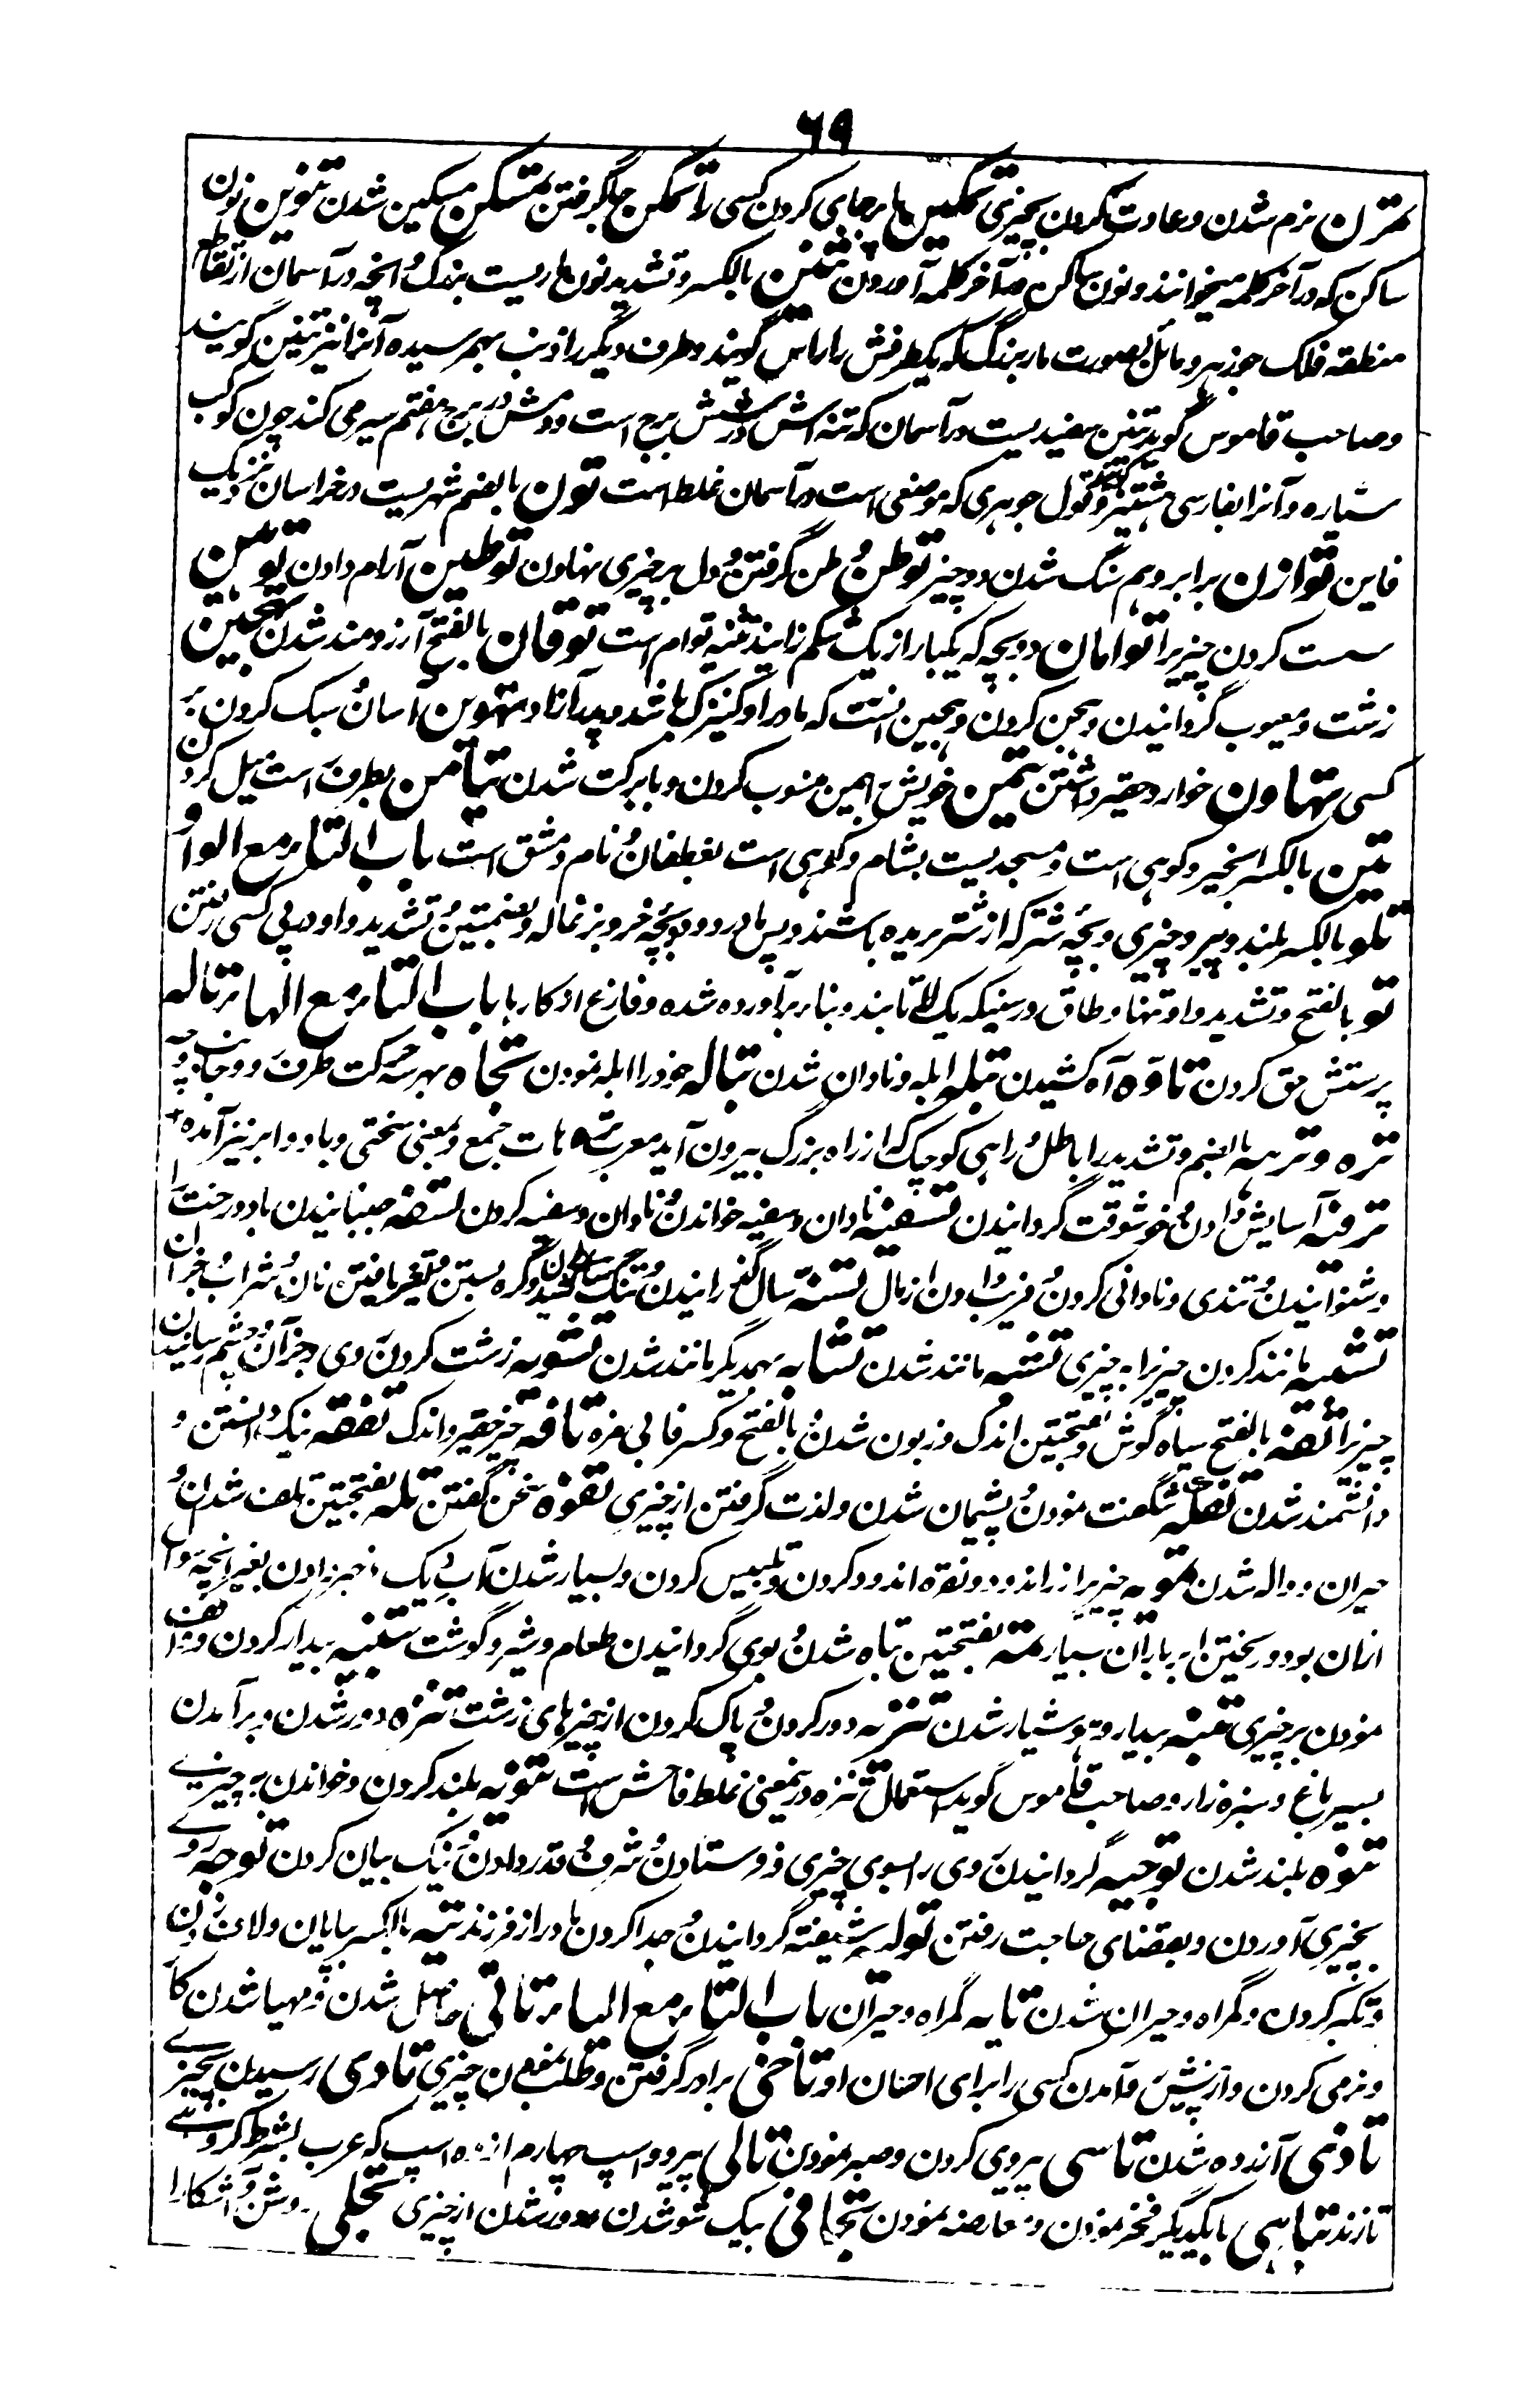 ۶۹
تمرن نرم شدن و عادت کردن بچیزی تمکین پا برجای کردن کسی را تمکن جا گرفتن تمسکن مسکین شدن تنوین نون
ساکن که در آخر کلمه میخوانند و نون ساکن در آخر کلمه آوردن تنین بالکسر و تشدید نون ماریست بزرگ و آنچه در آسمان از تقاطع
منطقه فلک جوزهر و مائل بصورت مار بزرگ که یکطرفش را راس گویند و طرف دیگر را ذنب بهم رسیده آنرا نیز تنین گویند
و صاحب قاموس گوید تنین سفیدیست در آسمان که تنه اش در شش برج است و دمش در برج هفتم سیر می کند چون کوکب
سیاره و آنرا بفارسی هشتنبر گویند و قول جوهری که موضعی است در آسمان غلط است تون بالضم شهریست در خراسان نزدیک
قاین توازن برابر و هم سنگ شدن دو چیز توطن وطن گرفتن و دل بر چیزی نهادن توطین آرام دادن توهین
سست کردن چیزیرا توامان دو بچه که یکبار از یک شکم زایند تثنیه توام است توقان بالفتح آرزومند شدن تهجین
زشت و معیوب گردانیدن و هجین کردن و هجین آنست که مادر او کنیزک باشد و پدر آزاد تهوین آسان و سبک کردن بر
کسی تهاون خوار و حقیر داشتن تیمن خویش را بیمن منسوب کردن و بابرکت شدن تیامن بطرف راست میل کردن
تین بالکسر انجیر و کوهی است و مسجدیست بشام و کوهی است بغطفان و نام دمشق است باب التاء مع الواو
تلو بالکسر بلند و پیرو چیزی و بچه شتر که از شتر بریده باشند و پس مادر رود و بچه خر و بزغاله و بضمتین و تشدید واو در پی کسی رفتن
تو بالفتح و تشدید واو تنها و طاق و رسنیکه یک لا تابند و بناء برآورده شده و فارغ از کارها باب التاء مع الهاء تاله
پرستش حق کردن تاوه آه کشیدن تبله ابله و نادان شدن تباله خود را ابله نمودن تجاه بهر سه حرکت طرف و جانب و
تره و ترهه بالضم و تشدید را باطل و راهی کوچک که از راه بزرگ بیرون آید معرب ترهات جمع و بمعنی سختی و باد و ابر نیز آمده
ترفیه آسایش دادن و خوشوقت گردانیدن تسفیه نادان و سفیه خواندن و نادان و سفیه کردن تسفه جنبانیدن باد درخت را
و شنوانیدن و تندی و نادانی کردن و فریب دادن از مال تسنه سال گذرانیدن و گره بستن و متغیر یافتن نان و شراب و جز آن
تشبیه مانند کردن چیزیرا به چیزی تشبه مانند شدن تشابه بهمدیگر مانند شدن تشویه زشت کردن روی و جز آن و چشم رسانیدن
چیزیرا تفه بالفتح سیاه گوش و بفتحتین اندک و زبون شدن و بالفتح و کسر فا بی مزه تافه چیز حقیر و اندک تفقه نیک دانستن و
دانشمند شدن تفکه شگفت نمودن و پشیمان شدن و لذت گرفتن از چیزی تفوه سخن گفتن تله بفتحتین تلف شدن و
حیران و واله شدن تمویه چیزیرا زر اندود و نقره اندود کردن و تلبیس کردن و بسیار شدن آب دیک و خبر دادن بغیر آنچه سوال
ازان بود و ریختن ابر باران بسیار تمه بفتحتین تباه شدن و بوی گردانیدن طعام و شیر و گوشت تنبیه بیدار کردن و واقف
نمودن بر چیزی تنبه بیدار و هوشیار شدن تنزیه دور کردن و پاک کردن از چیزهای زشت تنزه دور شدن و برآمدن
بسیر باغ و سبزه زار و صاحب قاموس گوید استعمال تنزه درینمعنی غلط فاحش است تنویه بلند کردن و خواندن به چیزی
تنوه بلند شدن توجیه گردانیدن روی را بسوی چیزی و فرستادن و شرف و قدر دادن و نیک بیان کردن توجه روی
بچیزی آوردن و بقضای حاجت رفتن توله شیفته گردانیدن و جدا کردن مادر از فرزند تیه بالکسر بیابان و لاف زدن
و تکبر کردن و گمراه و حیران شدن تایه گمراه و حیران باب التاء مع الیاء تاتی حاصل شدن و مهیا شدن کار
و نرمی کردن و از پیش درآمدن کسی را برای احسان او تاخی برادر گرفتن و طلب نمودن چیزی تادی رسیدن بچیزی
تاذی آزرده شدن تاسی پیروی کردن و صبر نمودن تالی پیرو و اسپ چهارم از ده اسپ که عرب بشرط گرو
تازند تباهی بایکدیگر فخر نمودن و معارضه نمودن تجافی بیک سو شدن و دور شدن از چیزی تجلی روشن و آشکارا